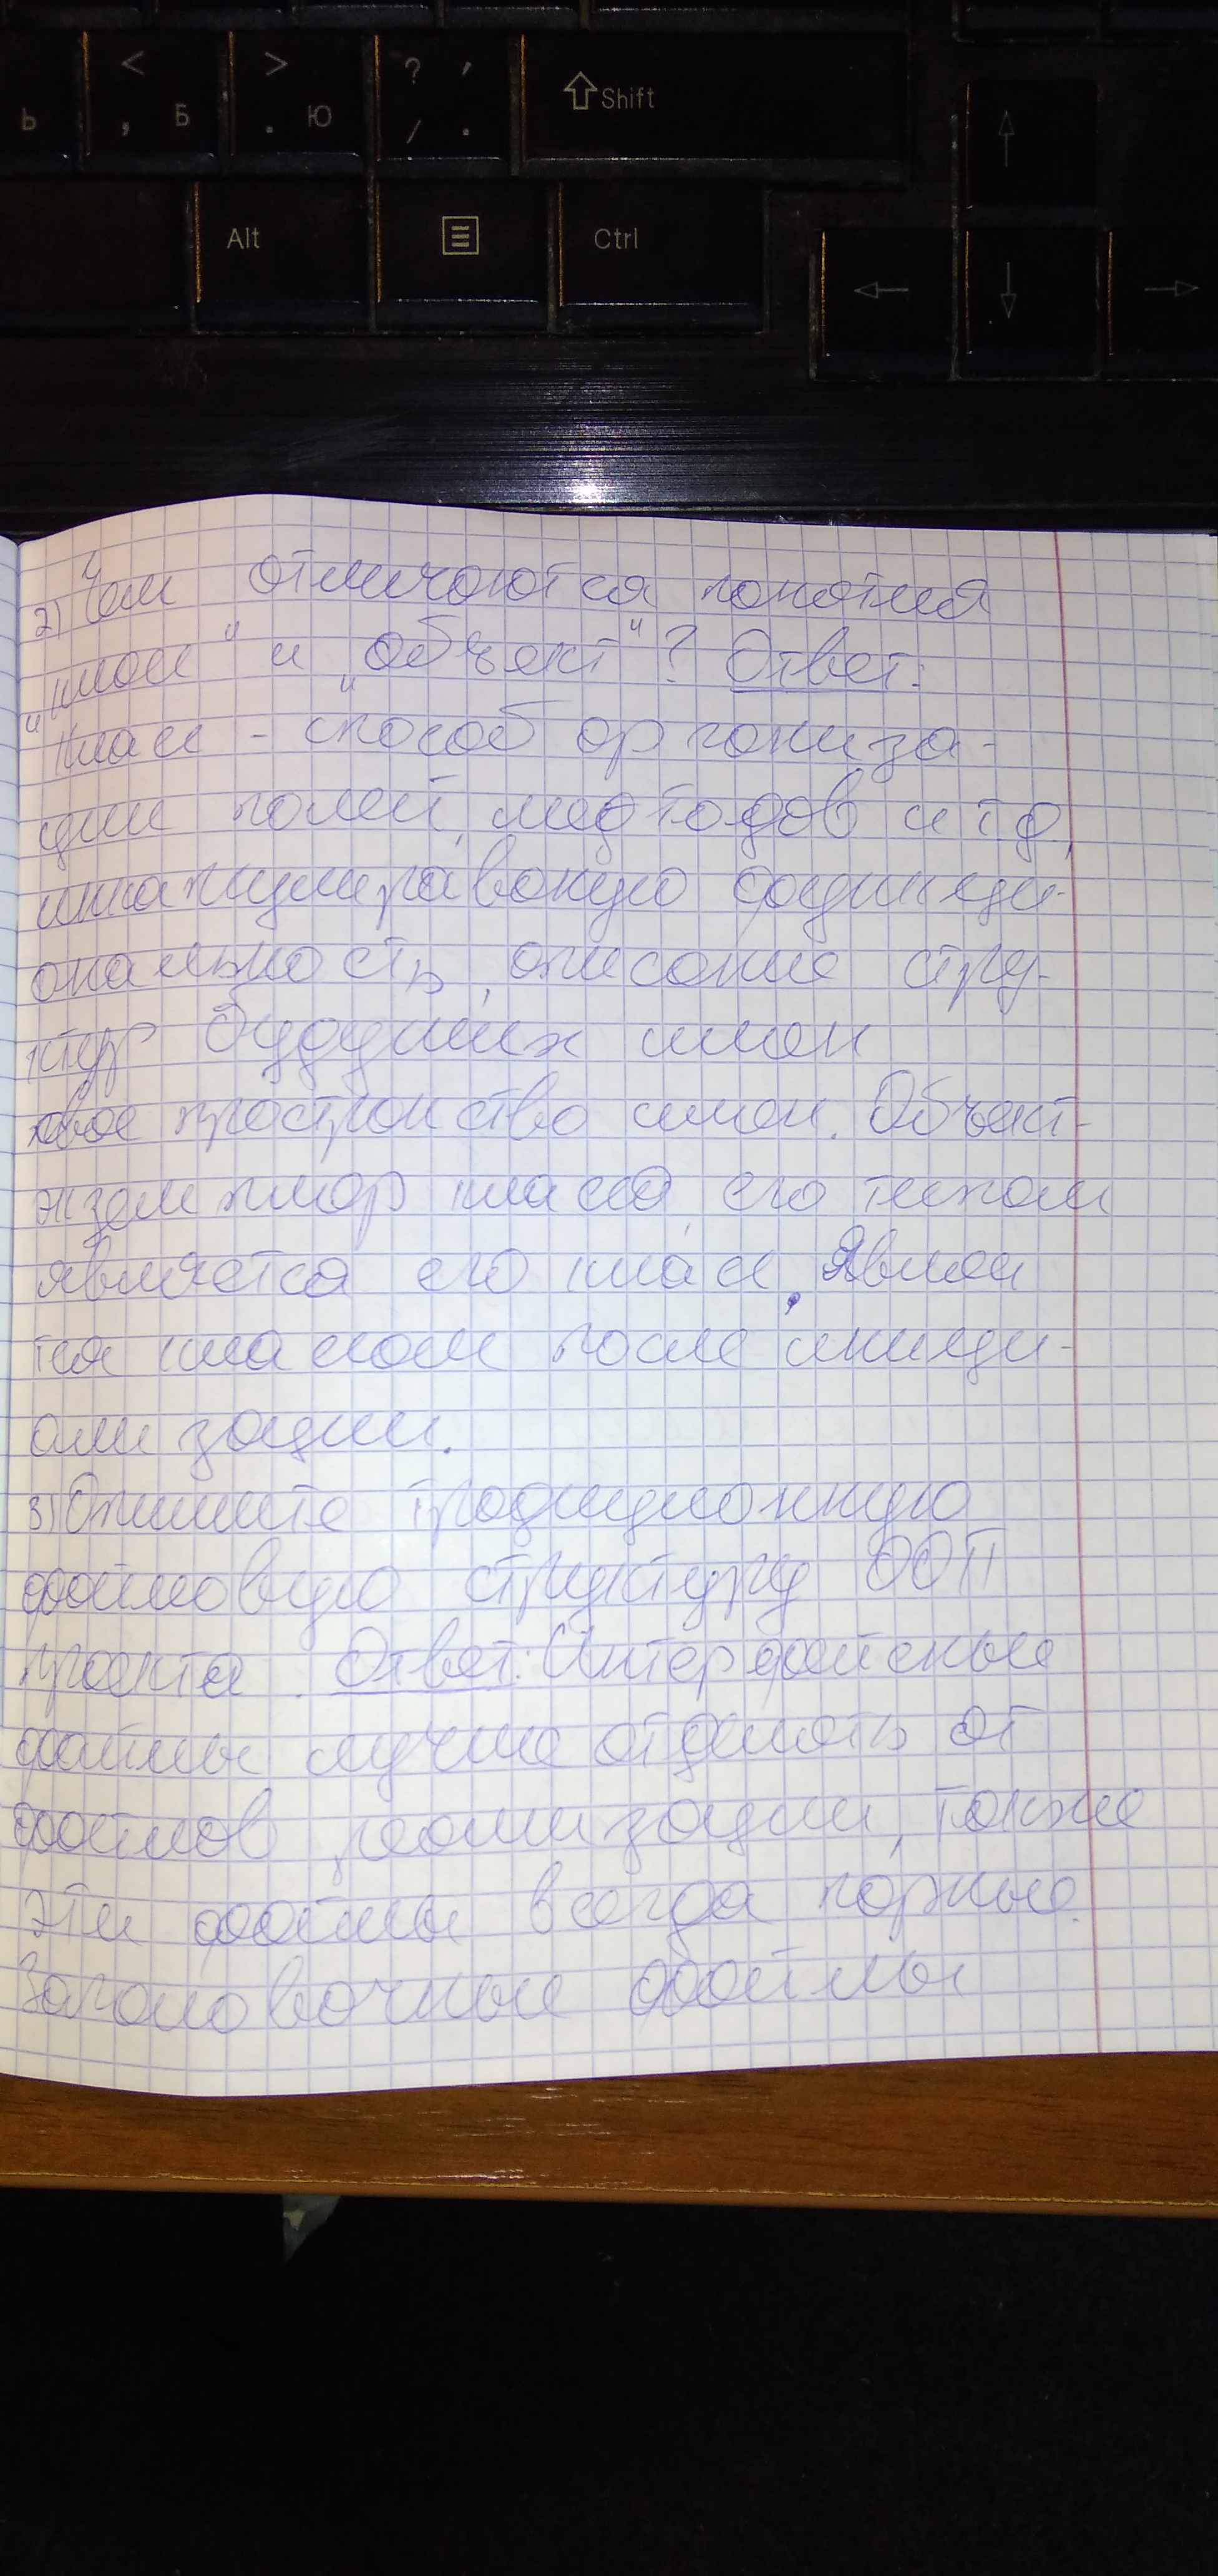 < > ? ,
ь , Б . Ю / . Shift
Alt Ctrl
2) Чем отличаются понятия
"класс" и "объект"? Ответ:
Класс - способ организа-
ции полей, медтодов и тд,
функци-
ональность, описание стру-
ктур будущих имен
свое простронство имен. Объект-
экземпляр класса, его типом
является его класс. Являе
тся класом после иници-
ализации.
3) Опишите традиционную
файловую структуру ООП
проекта. Ответ: Интерфейсные
файлы лучше отделять от
файлов реализации, также
эти файлы всегда парные.
Заголовочные файлы